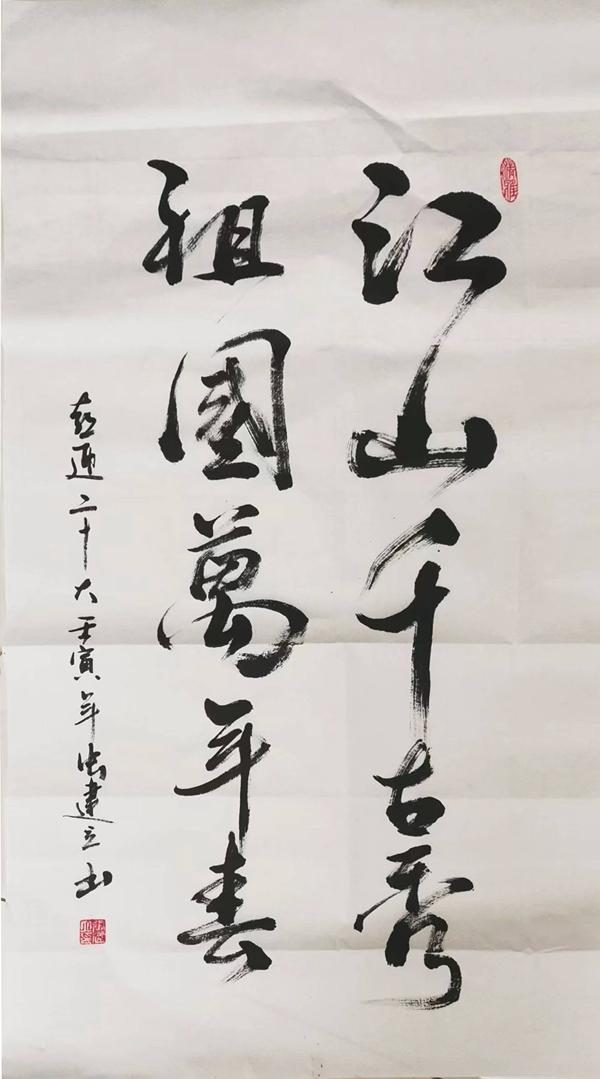 江山千古秀
祖國萬年春
喜迎二十大壬寅年張建立书